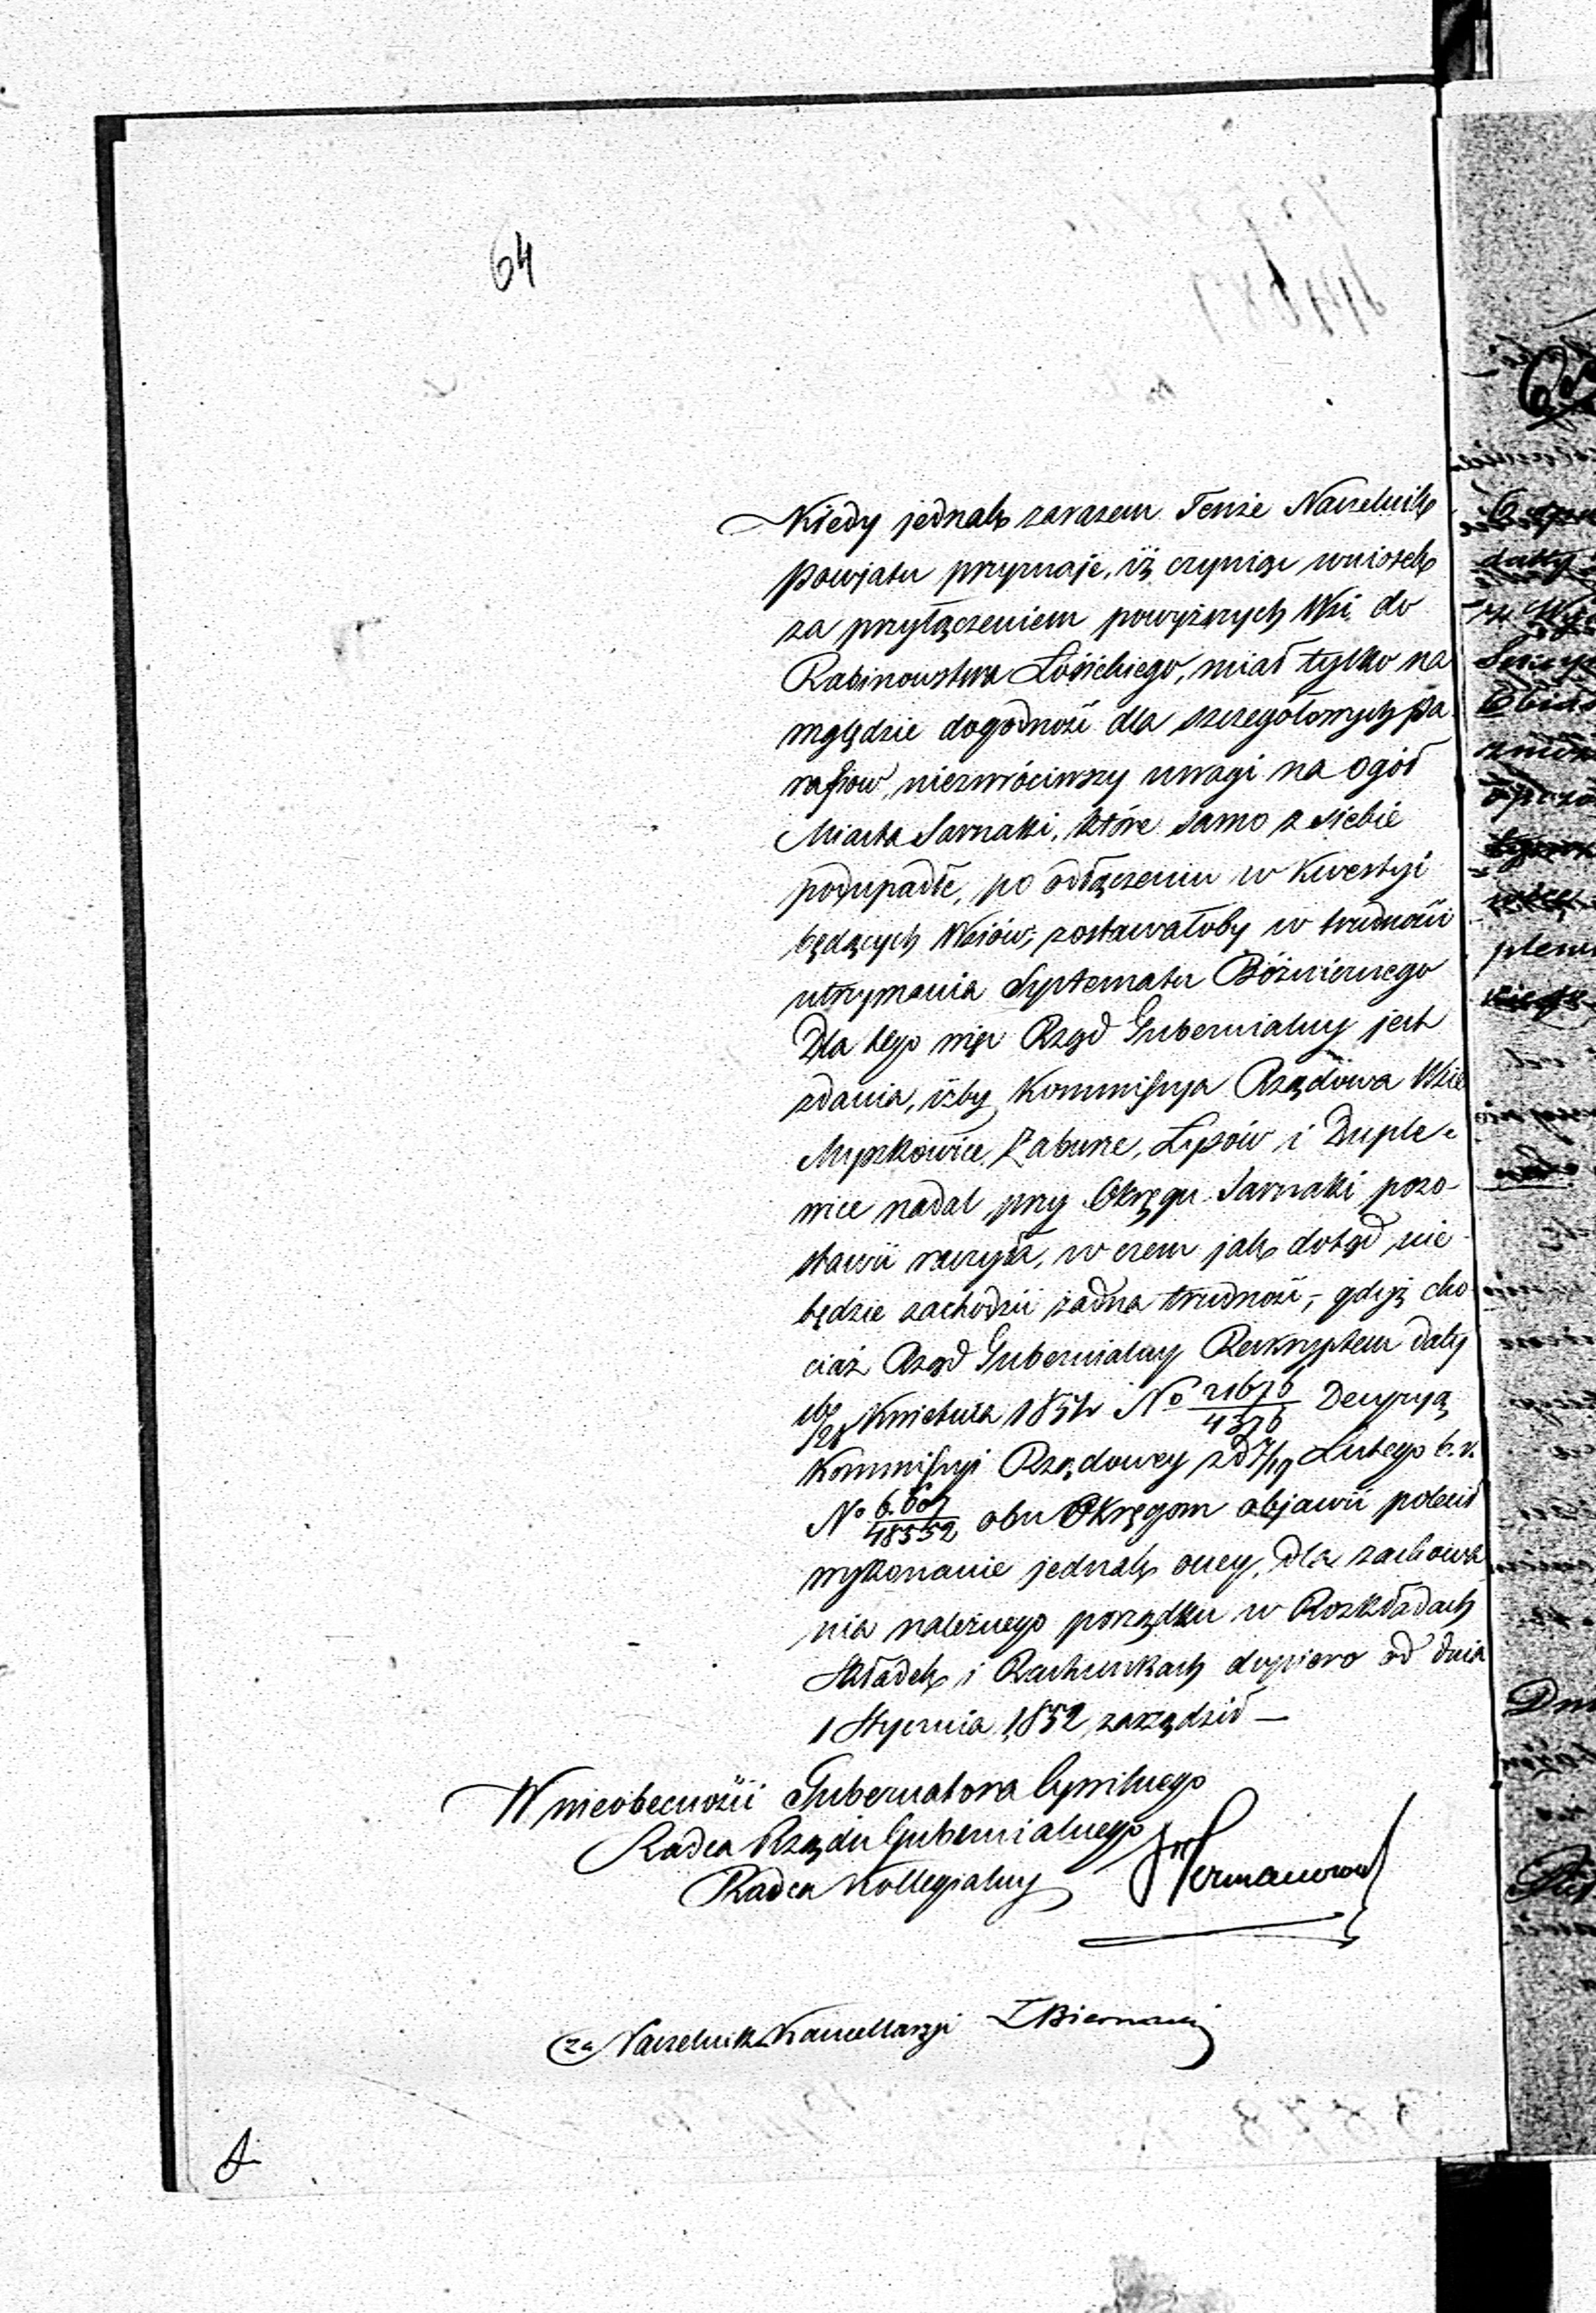 64
Kiedy jednak zarazem Tenże Naczelnik
Powiatu przyznaje, iż czyniąc wniosek
za przyłączeniem powyższych Wsi do
Rabinowstwa Łosickiego, miał tylko na
względzie dogodność dla szczegółowych pa
rafiow, niezwróciwszy uwagi na ogół
Miasta Sarnaki, które samo z siebie
podupadłe, po odłączeniu w kwestyi
będących Wsiów, zostawałoby w trudności
utrzymania Systematu Bóżnicznego
Dla tego więc Rząd Gubernialny jest
zdania, iżby Kommissya Rządowa Wsie
Myszkowice, Zabuże, Łysów i Duple-
wice nadal przy Okręgu Sarnaki pozo-
stawić raczyła, w czem jak dotąd nie-
będzie zachodzić żadna trudność, gdyż cho
ciaż Rząd Gubernialny Reskryptem daty
Kwietnia 1851 r No 21676/4376 Decyzyą
Kommissyi Rządowey z d 7/19 Lutego b. r.
No 6.607/48552 obu Okręgom objawić polecił
wykonanie jednak oney, dla zachowa
nia należnego porządku w Rozkładach
Składek i Rachunkach dopiero od dnia
1 Stycznia 1852 zarządził —
W nieobecności Gubernatora Cywilnego
Radca Rządu Gubernialnego
Radca Kollegialny
za Naczelnik Kancellaryi Biernacki